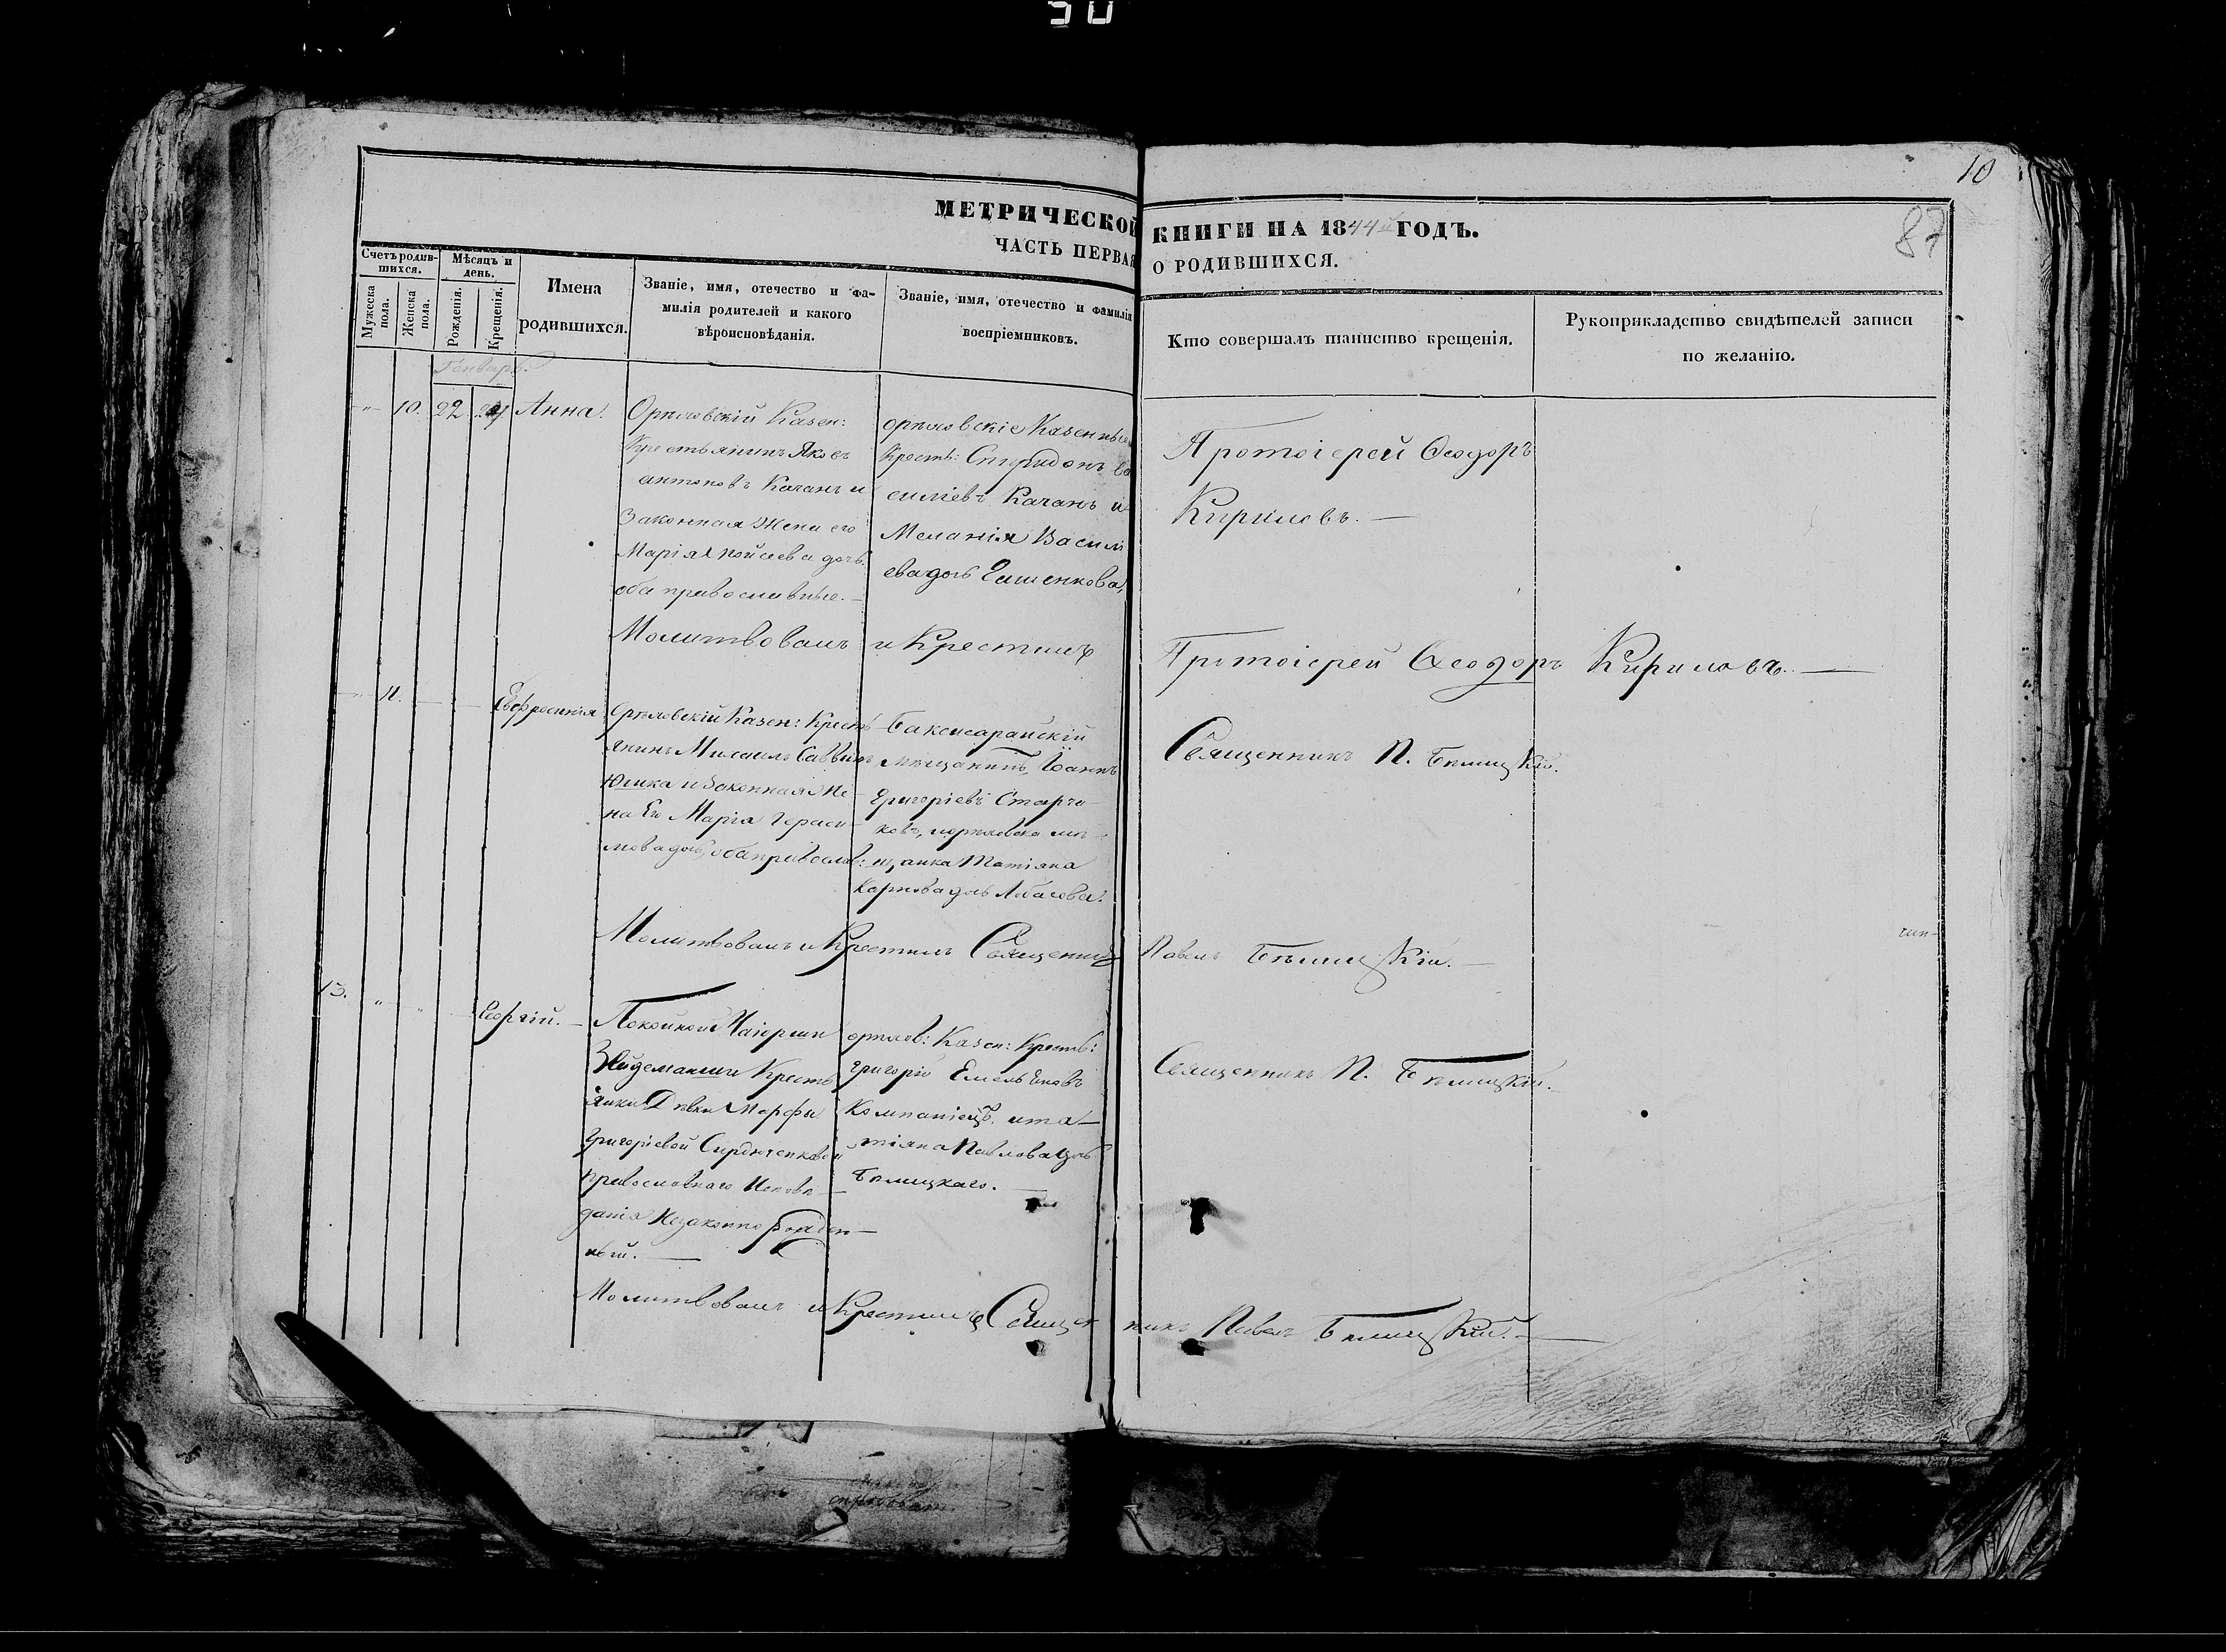 50
10
87
МЕТРИЧЕСКОЙ КНИГИ НА 1844й ГОДЪ.
ЧАСТЬ ПЕРВАЯ О РОДИВШИХСЯ.
Счетъ родив-
шихся.
Мужеска
пола.
Женска
пола.
Мѣсяцъ и
день.
Рожденія.
Крещенія.
Имена
родившихся.
Званіе, имя, отечество и фа-
милія родителей и какого
вѣроисновѣданія.
Званіе, имя, отечество и фамилія
воспріемниковъ.
Кто совершалъ таинство крещенія.
Рукоприкладство свидѣтелей записи
по желанію.
Генварь.
10. 22 24 Анна.
Орѣховскій Казен:
Крестьянинъ Яковъ
антоновъ Качанъ и
Законная Жена его
Марія дочь.
оба православные.
орѣховскіе Казенные
Крестъ: Спиридонъ Ва
силіевъ Качанъ и
Меланія Васил
ева дочь
Протоіерей Ѳеодоръ
Кириловъ.
Молитвовалъ и Крестилъ Протоіерей Ѳеодоръ Кириловъ.
11. Евфросинія
Орѣховскій Казен: Кресть
янинъ Михаилъ Саввинъ
Юшка и Законная Же-
на Его Марія Гераси-
мова дочь, оба православ:
Бакчисарайскій
мѣщанинъ, Іоаннъ
Григоріевъ Старчи-
ковъ, и орѣховска мѣ-
щанка Татіяна
Карпова дочь
Священникъ П. Бѣлицкій.
Молитвовалъ и Крестилъ Священникъ Павелъ Бѣлицкій.
13. Георгій.
Покойной Маіорши
Крестъ
янки Дѣвки Марфы
Григоріевой
православнаго Исповѣ-
данія Незаконно рожден-
ный.
орѣхов: Казен: Крестъ:
Григорій Емельяновъ
Компаніецъ и та-
тіяна Павлова дочь
Бѣлицкаго.
Священникъ П. Бѣлицкій.
Молитвовалъ и Крестилъ Священникъ Павелъ Бѣлицкій.